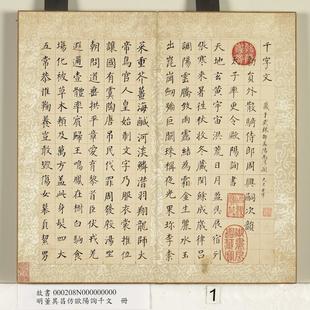 千字文
員外散騎侍郎周興嗣次韻
子率更令歐陽詢書
天地玄黃宇宙洪荒日月盈昃辰宿列
張寒來暑往秋收冬藏閏餘成歲律呂
調陽雲騰致雨露結為霜金生麗水玉
出崑崗劒號巨闕珠稱夜光果珍李柰
菜重芥薑海鹹河淡鱗潛羽翔龍師火
帝鳥官人皇始制文字乃服衣裳推位
讓國有虞陶唐弔民伐罪周發殷湯坐
朝問道垂拱平章愛育黎首臣伏戎羌
遐邇壹體率賓歸王鳴鳳在樹白駒食
場化被草木賴及萬方蓋此身髮四大
五常恭惟鞠養豈敢毀傷女慕貞絜男
故書 000208N000000000
明董其昌仿歐陽詢千文 冊
1